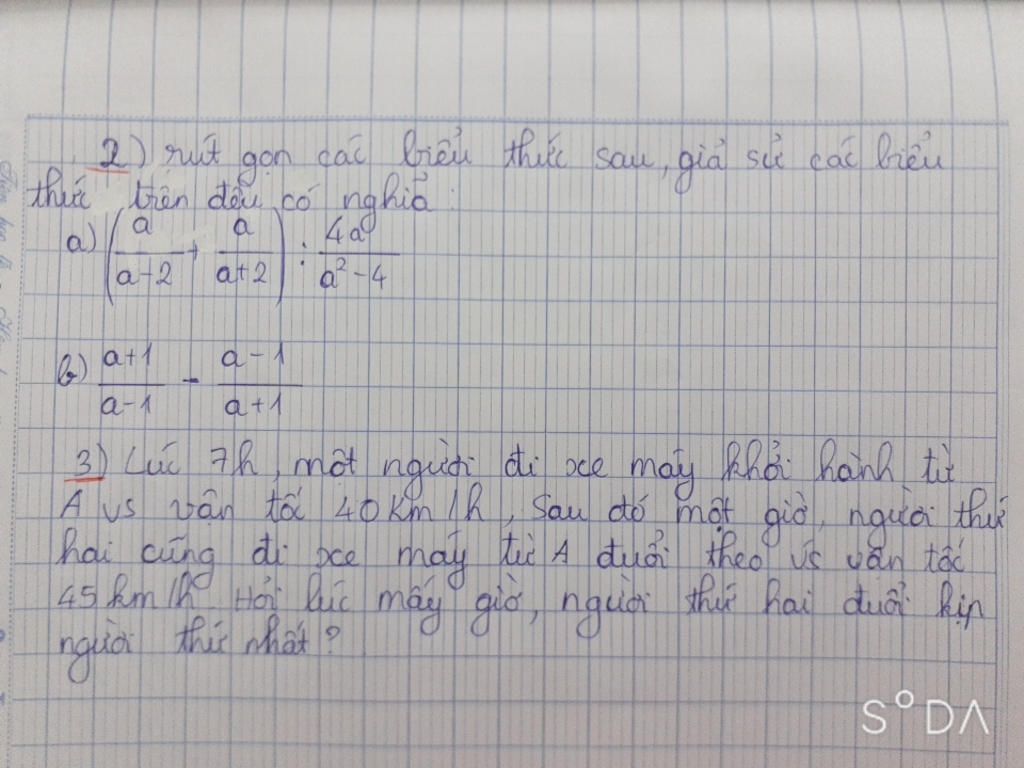 2) rút gọn các biểu thức sau, giả sử các biểu
thức trên đều có nghĩa:
a) (a/(a-2) + a/(a+2)) : 4a/(a²-4)
b) (a+1)/(a-1) - (a-1)/(a+1)
3) Lúc 7h, một người đi xe máy khởi hành từ
A vs vận tốc 40km/h, sau đó một giờ, người thứ
hai cũng đi xe máy từ A đuổi theo vs vận tốc
45km/h. Hỏi lúc mấy giờ, người thứ hai đuổi kịp
người thứ nhất?
SODA